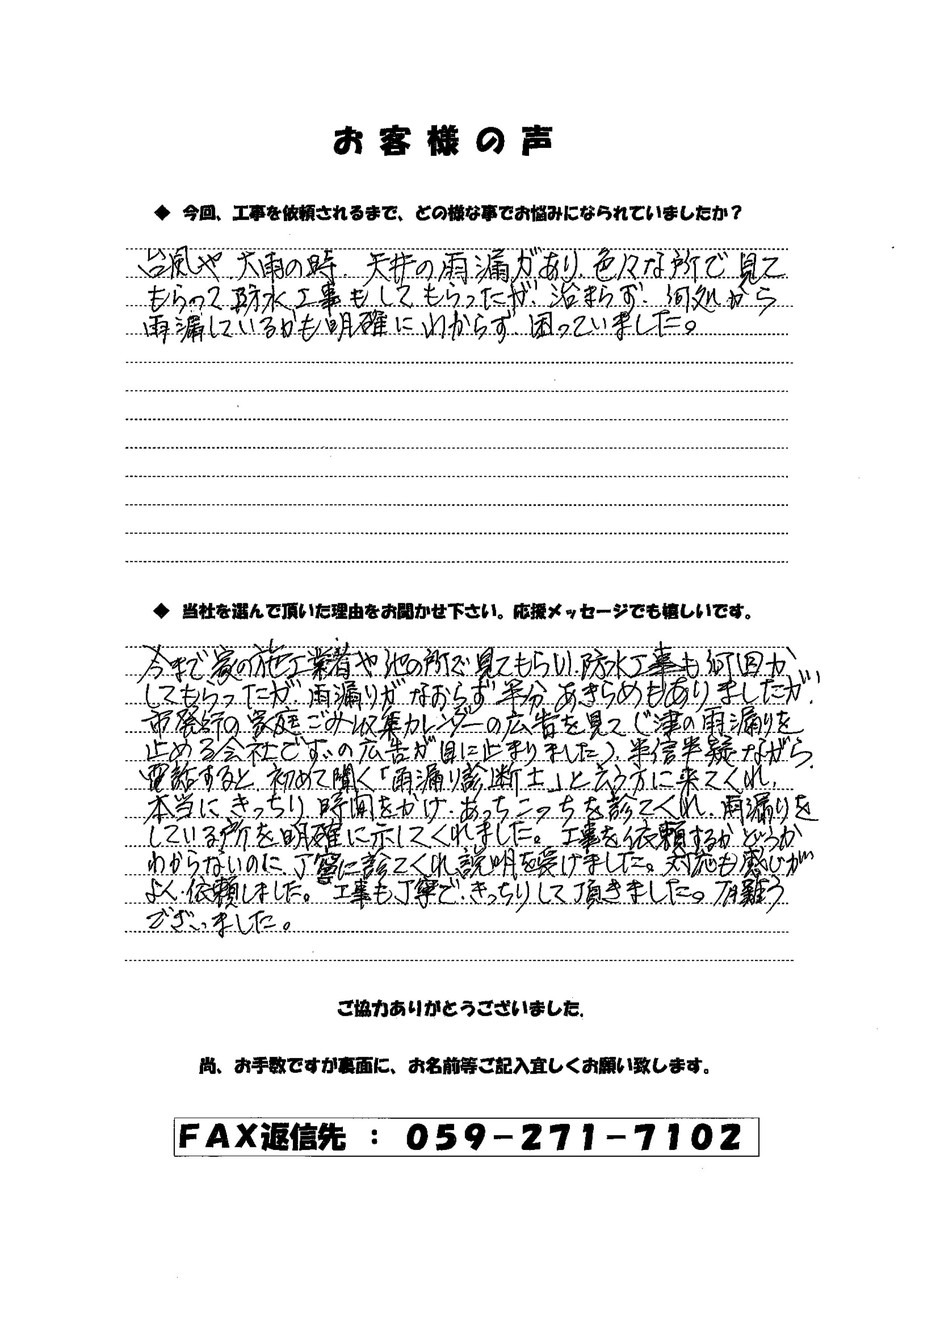 お客様の声
◆ 今回、工事を依頼されるまで、どの様な事でお悩みになられていましたか？
台風や大雨の時、天井の雨漏があり、色々な所で見て
もらって防水工事もしてもらったが、治まらず、何処から
雨漏しているかも明確にわからず困っていました。
◆ 当社を選んで頂いた理由をお聞かせ下さい。応援メッセージでも嬉しいです。
今まで家の施工業者や他の所で見てもらい防水工事も何回か
してもらったが、雨漏りがなおらず半分あきらめもありましたが、
市発行の家庭ごみ収集カレンダーの広告を見て(津の雨漏りを
止める会社です。の広告が目に止まりました)、半信半疑ながら、
電話すると、初めて聞く「雨漏り診断士」と云う方に来てくれ、
本当にきっちり時間をかけ、あっちこっちを診てくれ、雨漏りを
している所を明確に示してくれました。工事を依頼するかどうか
わからないのに、丁寧に診てくれ説明を受けました。対応も感じが
よく、依頼しました。工事も丁寧で、きっちりして頂きました。有難う
ございました。
ご協力ありがとうございました。
尚、お手数ですが裏面に、お名前等ご記入宜しくお願い致します。
FAX返信先 ： 059-271-7102